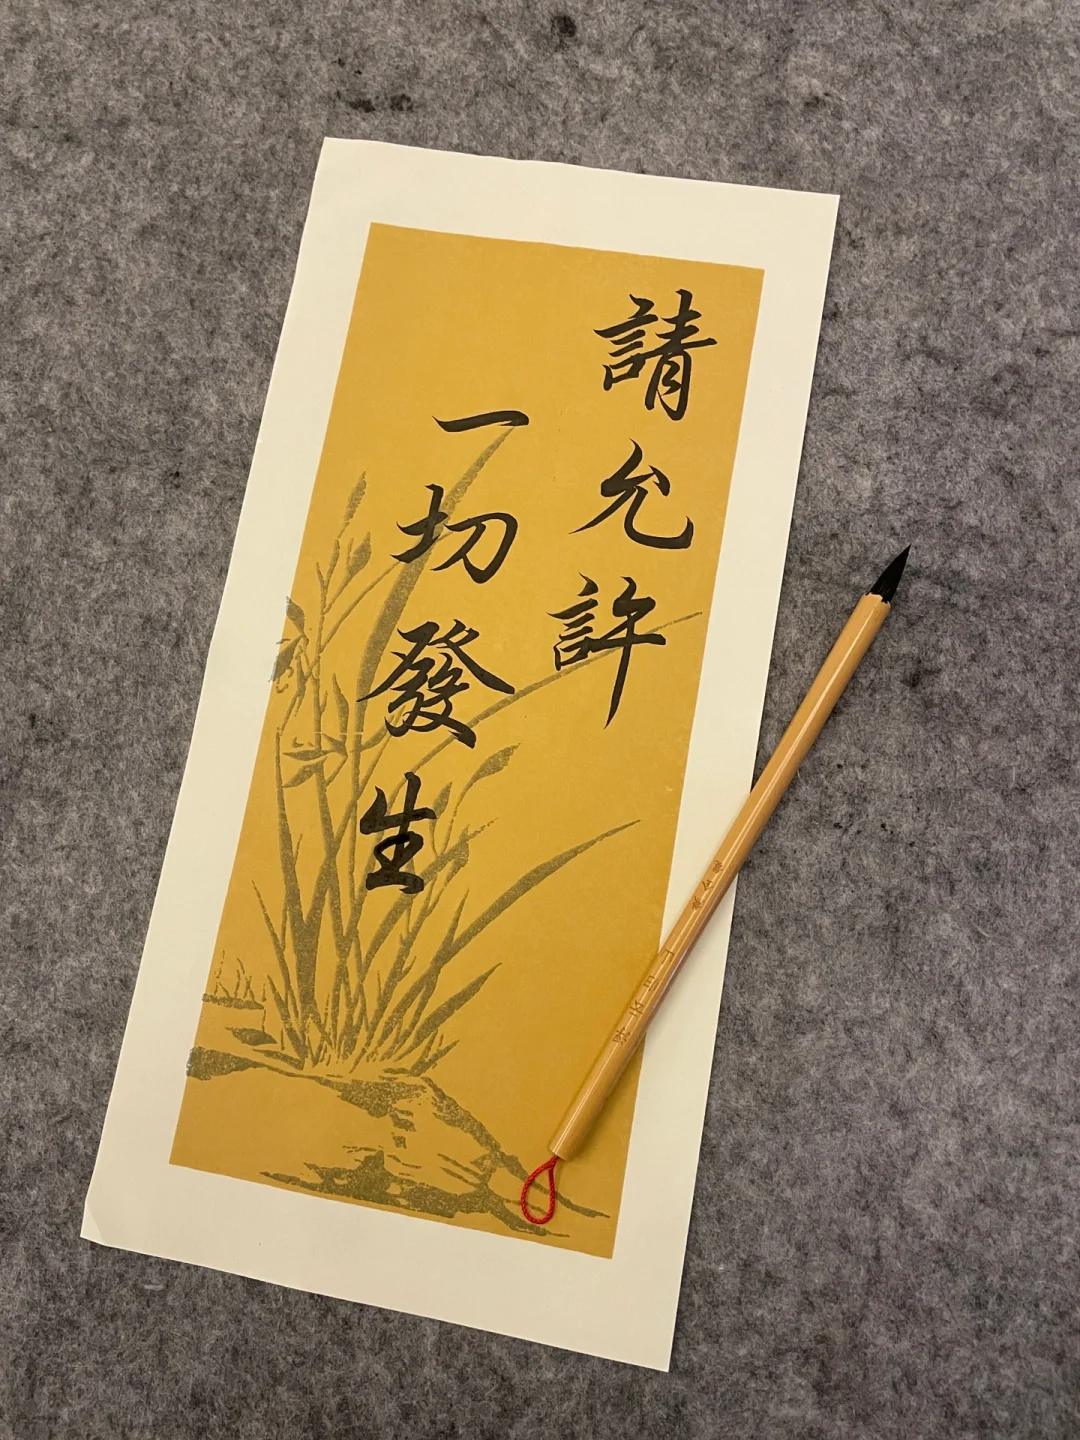 請允許
一切發生